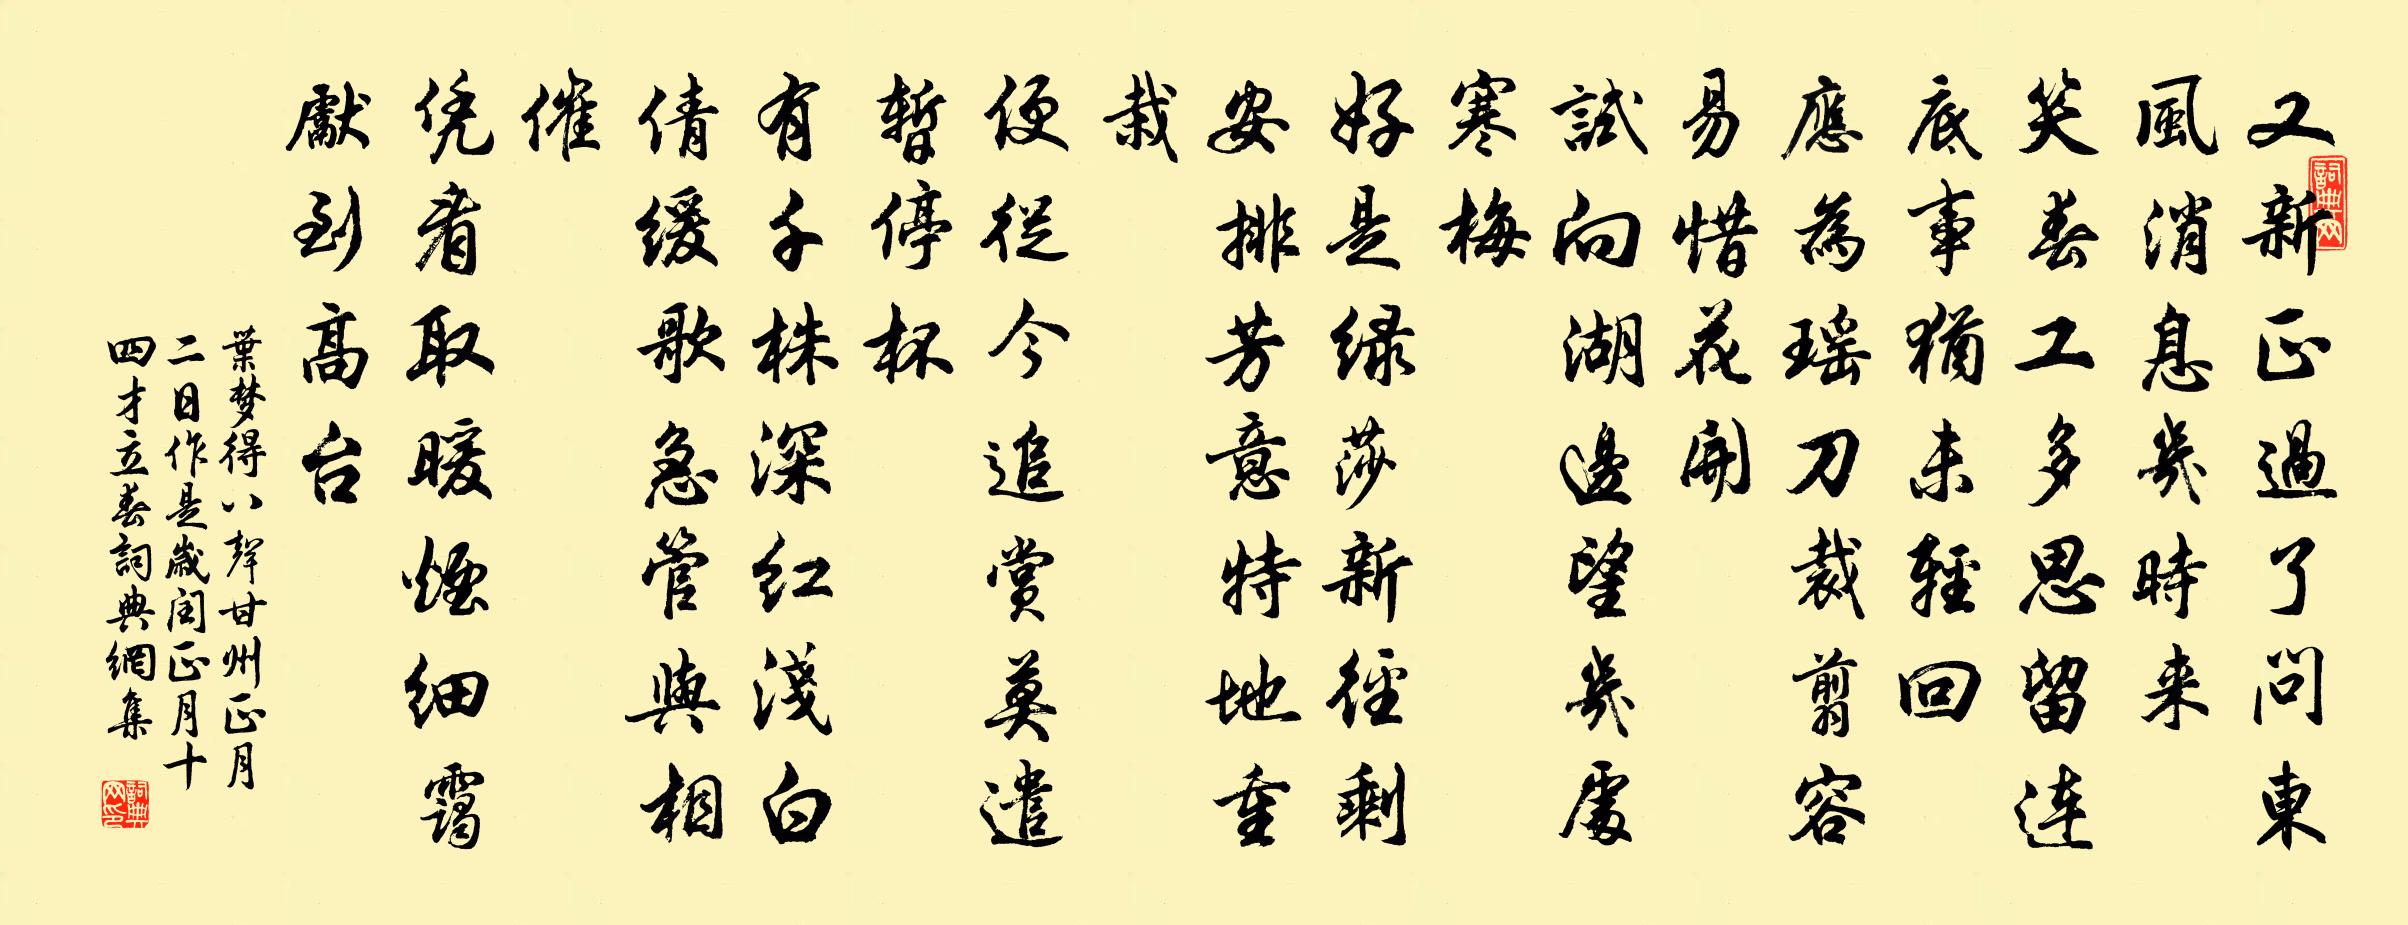 又新正過了問東
風消息幾時来
笑春工多思留連
底事猶未輕回
應為瑶刀裁剪容
易惜花開
試向湖邊望幾處
寒梅
好是緑莎新徑剩
安排芳意特地重
栽
便從今追賞莫遣
暫停杯
有千株深紅淺白
倩缓歌急管與相
催
凭看取暖煙細靄
獻到高台
葉梦得八聲甘州正月
二日作是歲閏正月十
四才立春詞典網集
詞典网
詞典网印